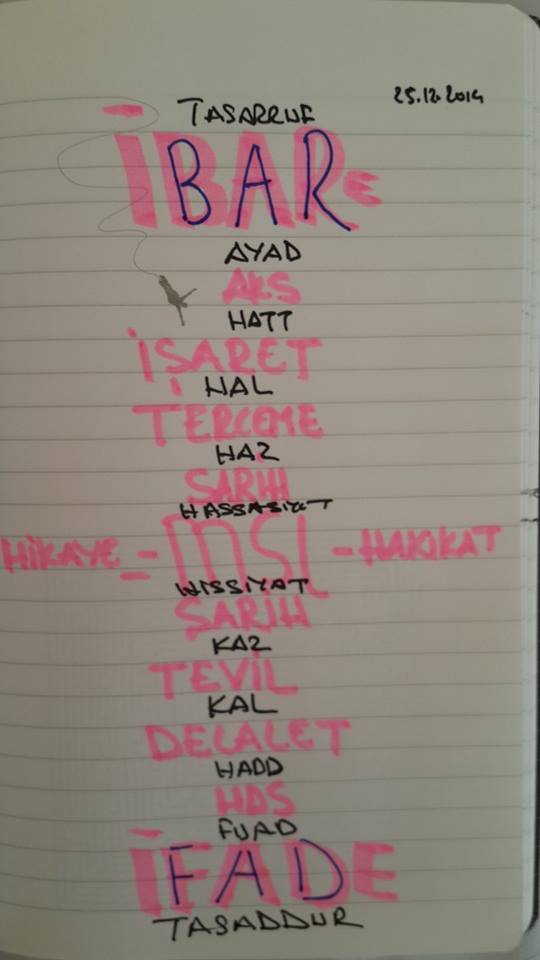 25.12.2014
TASARRUF
İBARE
AYAD
AKS
HATT
İŞARET
HAL
TERCEME
HAZ
SARIH
HASSASİYET
HİKAYE - MSL - HAKIKAT
HISSİYAT
SARİH
KAZ
TEVİL
KAL
DELALET
HADD
HDS
FUAD
İFADE
TASADDUR